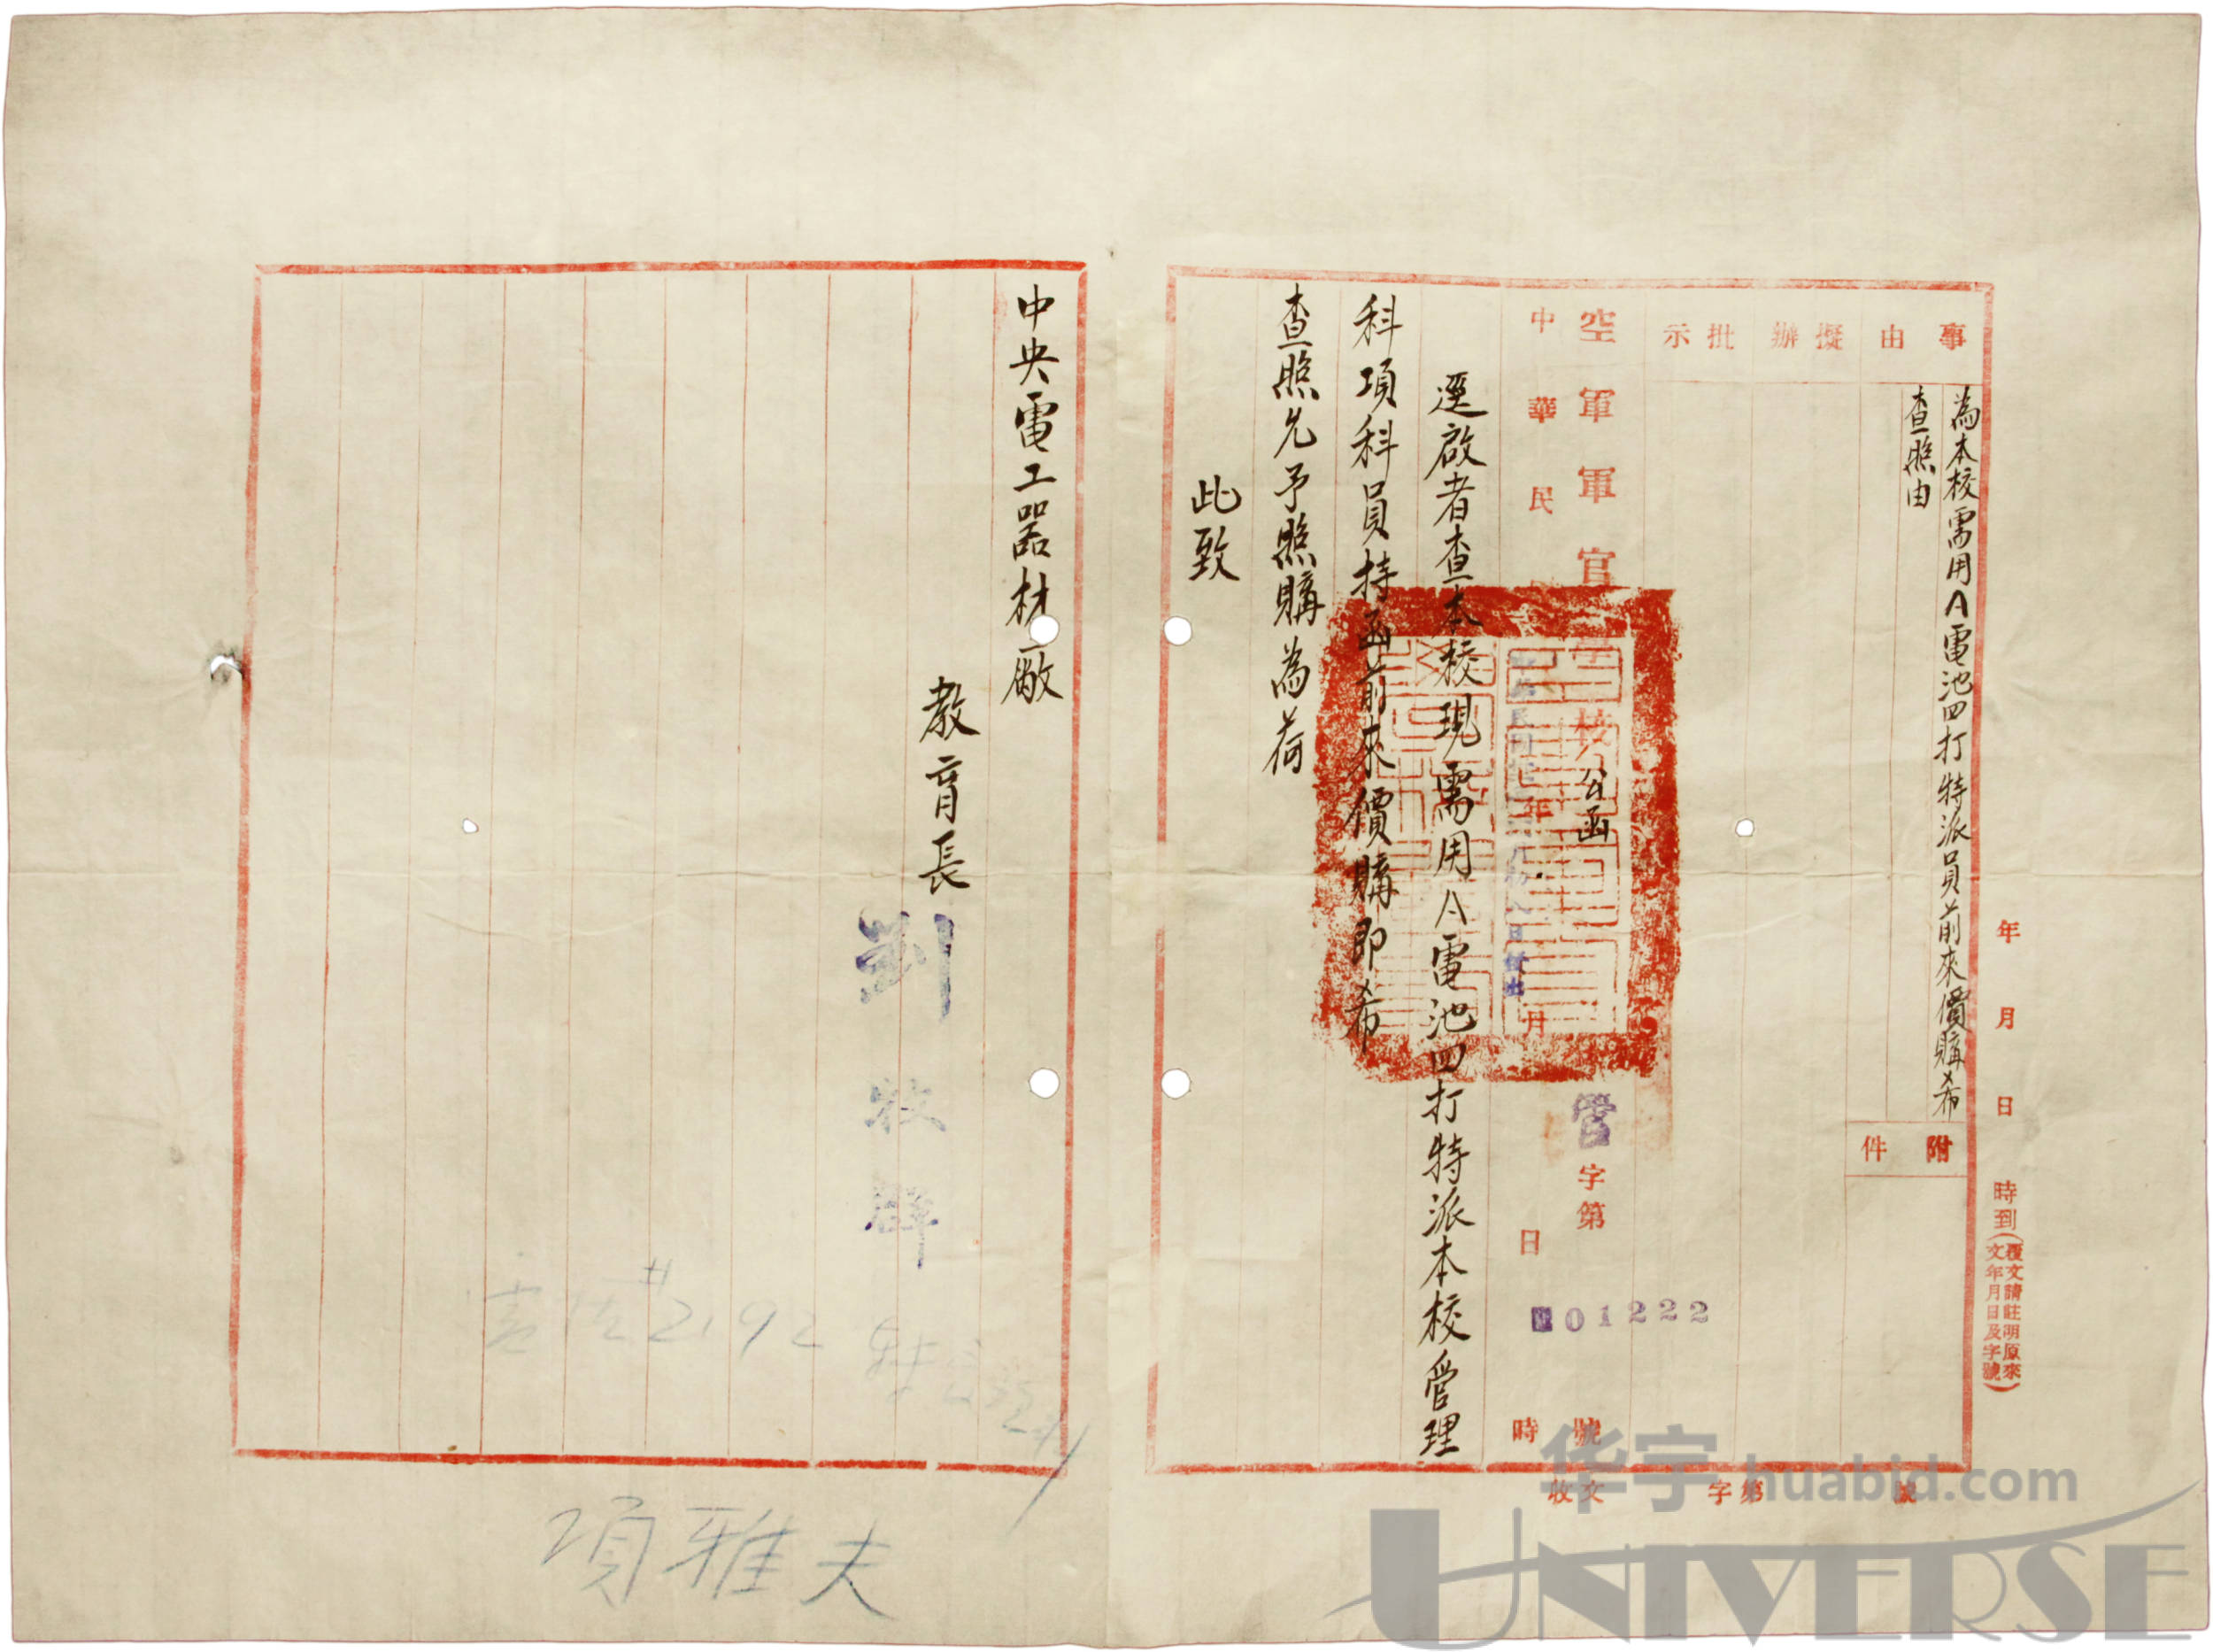 年 月 日 時到(覆文請註明原來文年月日及字號)
事由
為本校需用A電池四打特派員前來價購希
查照由
附件
擬辦
批示
空軍軍官學校公函
管字第
號01222
號
中華民
年 月 日 時
逕啟者查本校現需用A電池四打特派本校管理
科項科員持函前來價購即希
查照允予照購為荷
此致
收文 字第 號
中央電工器材廠
教育長
劉牧群
#2192
項雅夫
华宇 huabid.com
UNIVERSE